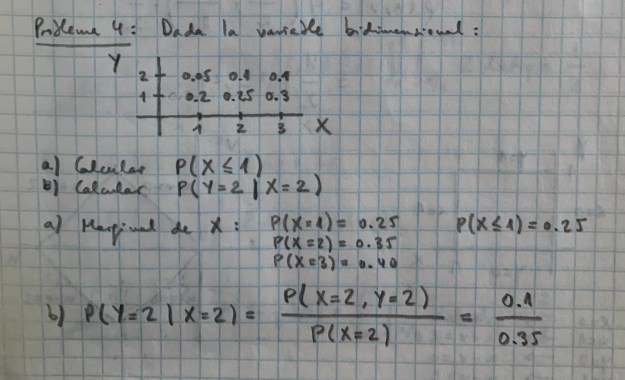 Problema 4: Dada la variable bidimensional:
Y
2 0.05 0.1 0.1
1 0.2 0.25 0.3
1 2 3 X
a) Calcular P(X ≤ 1)
b) Calcular P(Y=2 | X=2)
a) Marginal de X: P(X=1) = 0.25 P(X≤1) = 0.25
P(X=2) = 0.35
P(X=3) = 0.40
b) P(Y=2 | X=2) = P(X=2, Y=2) / P(X=2) = 0.1 / 0.35